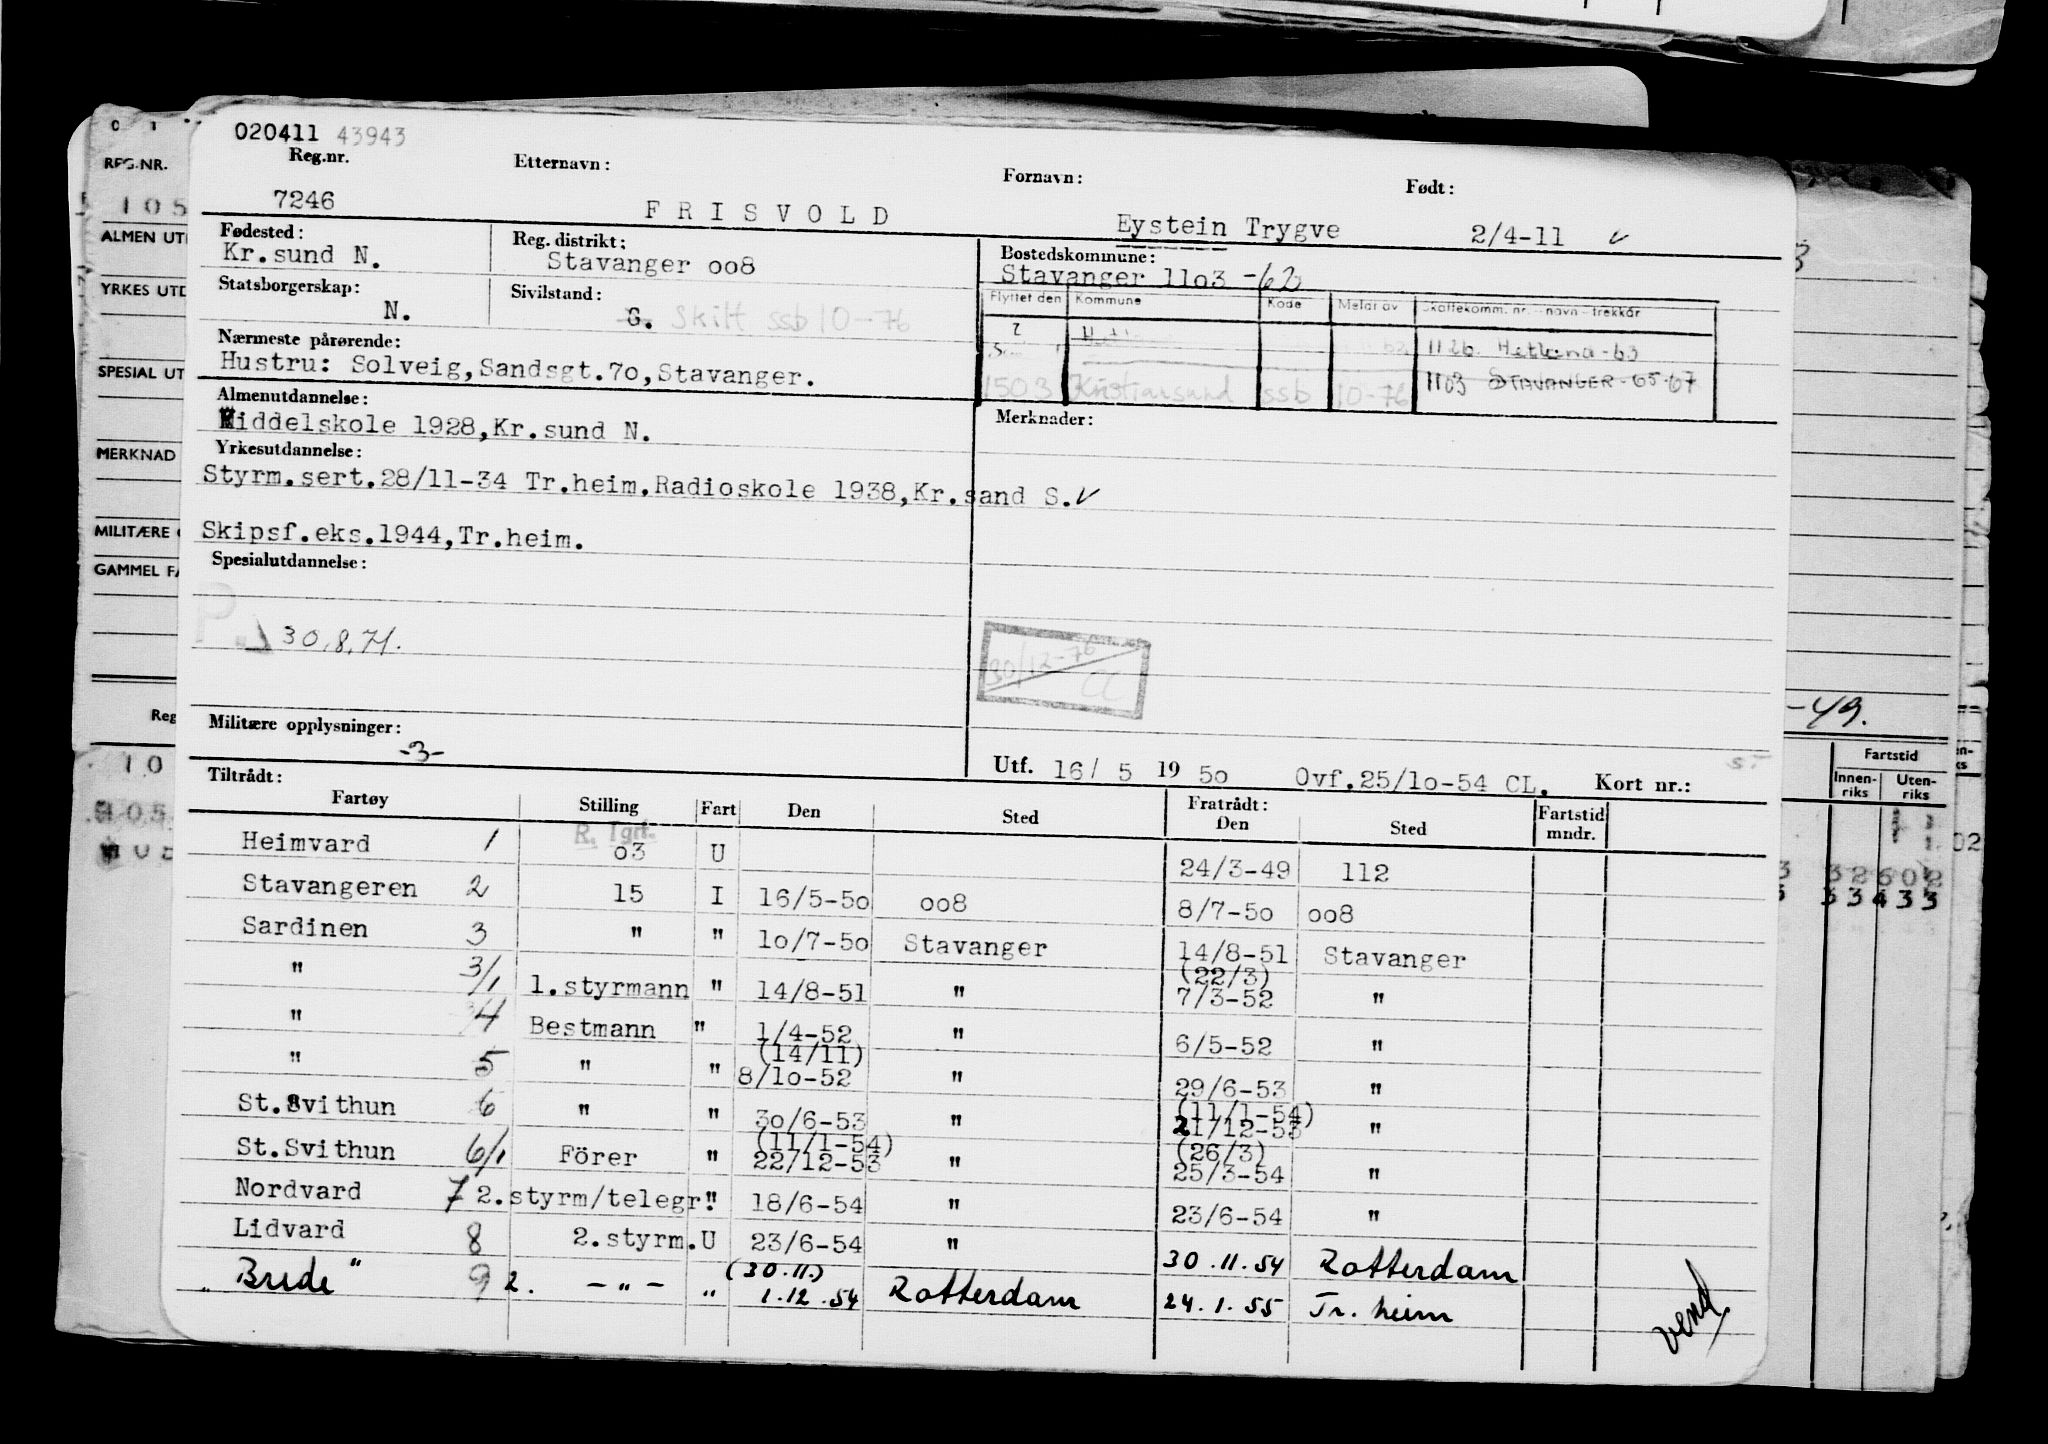 020411 43943
Reg.nr. Etternavn: Fornavn: Født:
7246 FRISVOLD Eystein Trygve 2/4-11 v
Fødested: Reg. distrikt; Bostedskommune:
Kr.sund N. Stavanger oo8 Stavanger 11o3 -62
Statsborgerskap: Sivilstand: Flyttet den Kommune Kode Meldt av Skattekomm. nr. - navn - trekkår
N. G. Skilt ssb 10-76
1126. Hetland-63
Nærmeste pårørende:
Hustru: Solveig,Sandsgt.7o,Stavanger.
1103 STAVANGER-65-67
1503 Kristiansund ssb 10-76
Almenutdannelse: Merknader:
Middelskole 1928,Kr.sund N.
Yrkesutdannelse:
Styrm.sert.28/11-34 Tr.heim.Radioskole 1938,Kr.sand S. v
Skipsf.eks.1944,Tr.heim.
Spesialutdannelse:
P. 30.8.71.
30/12-76
CC
Militære opplysninger:
-3-
Utf. 16/ 5 19 5o Ovf.25/1o-54 CL. Kort nr.:
Tiltrådt: Fratrådt:
Fartøy Stilling Fart Den Sted Den Sted Fartstid mndr.
R. Tgrf.
Heimvard 1 o3 U 24/3-49 112
Stavangeren 2 15 I 16/5-5o oo8 8/7-5o oo8
Sardinen 3 " " 1o/7-5o Stavanger 14/8-51 Stavanger
(22/3)
" 3/1 1.styrmann " 14/8-51 " 7/3-52 "
" 4 Bestmann " 1/4-52 " 6/5-52 "
(14/11)
" 5 " " 8/1o-52 " 29/6-53 "
(11/1-54)
St.Svithun 6 " " 3o/6-53 " 21/12-53 "
(11/1-54) (26/3)
St.Svithun 6/1 Förer " 22/12-53 " 25/3-54 "
Nordvard 7 2.styrm/telegr." 18/6-54 " 23/6-54 "
Lidvard 8 2.styrm. U 23/6-54 " 30.11.54 Rotterdam
(30.11.)
" Brede " 9 2. -"- " 1.12.54 Rotterdam 24.1.55 Tr. heim
vend
REG.NR.
105
ALMEN UT
YRKES UTD
SPESIAL UT
MERKNAD
MILITÆRE
GAMMEL FA
Reg
10
-49.
Fartstid
Innen-riks Uten-riks
02
32602
33433